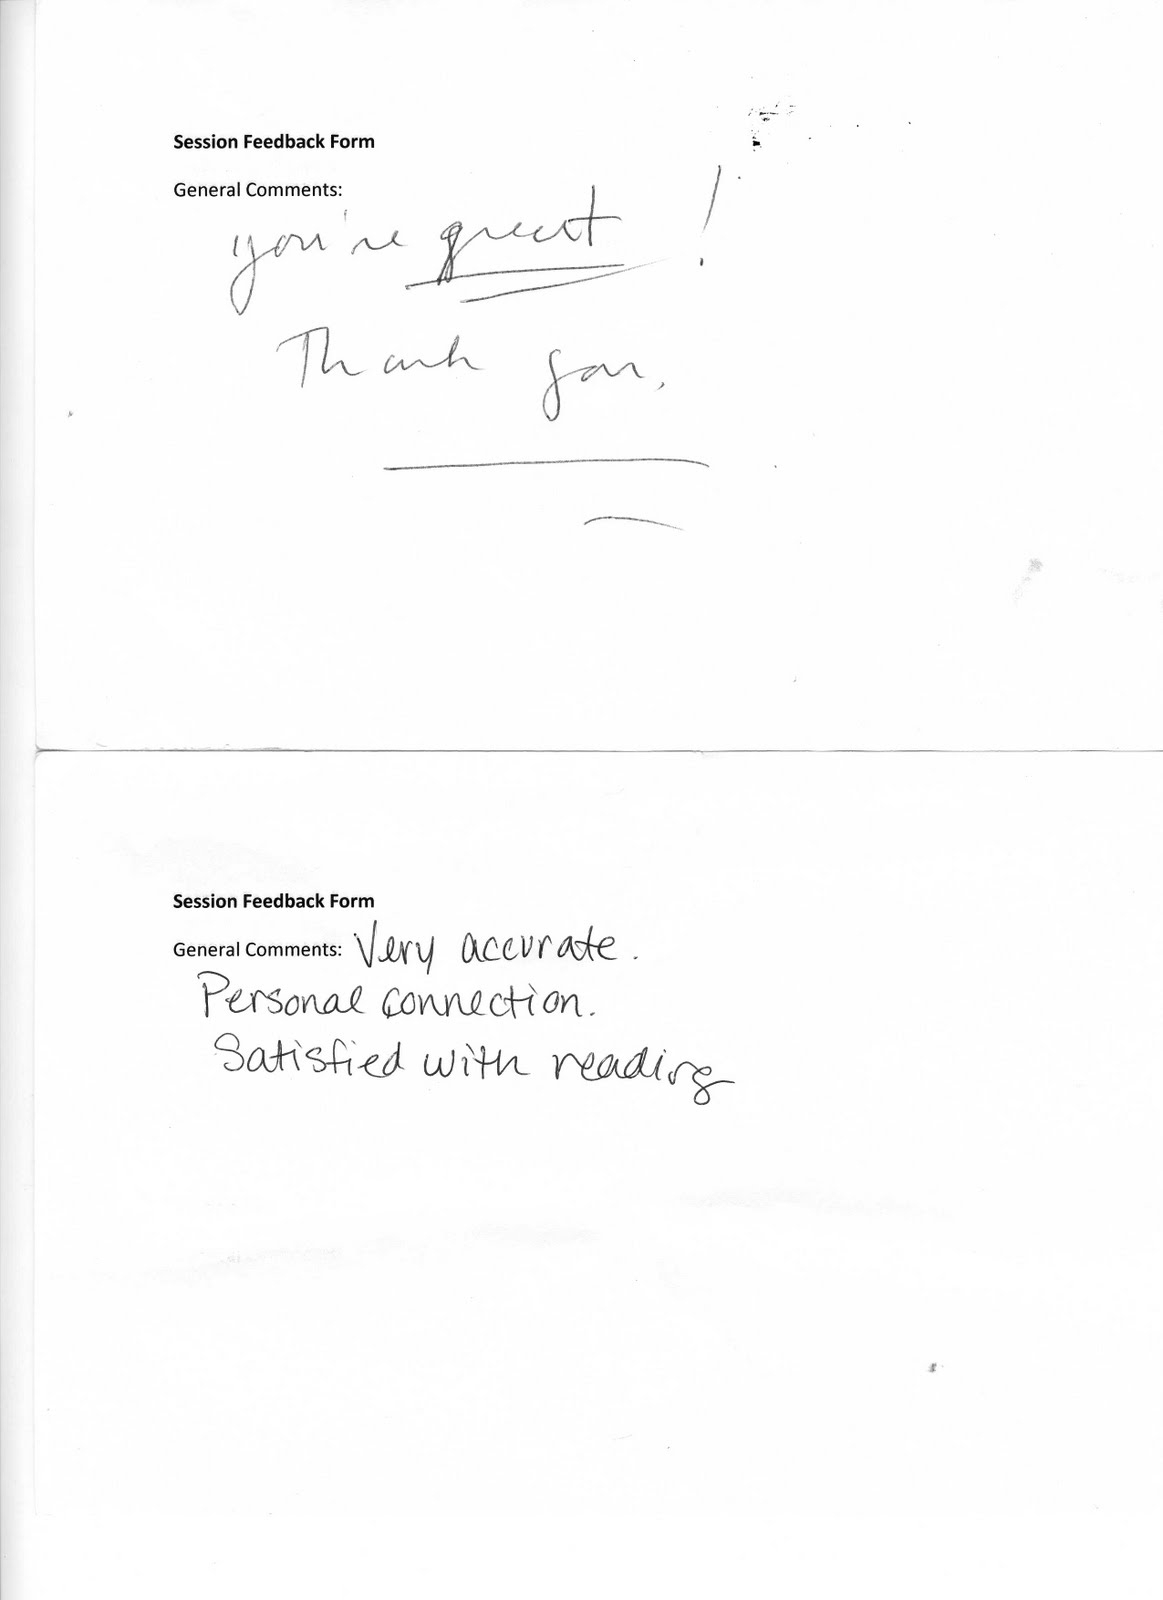 Session Feedback Form
General Comments:
you're great !
Thank you.
Session Feedback Form
General Comments: Very accurate.
Personal connection.
Satisfied with reading